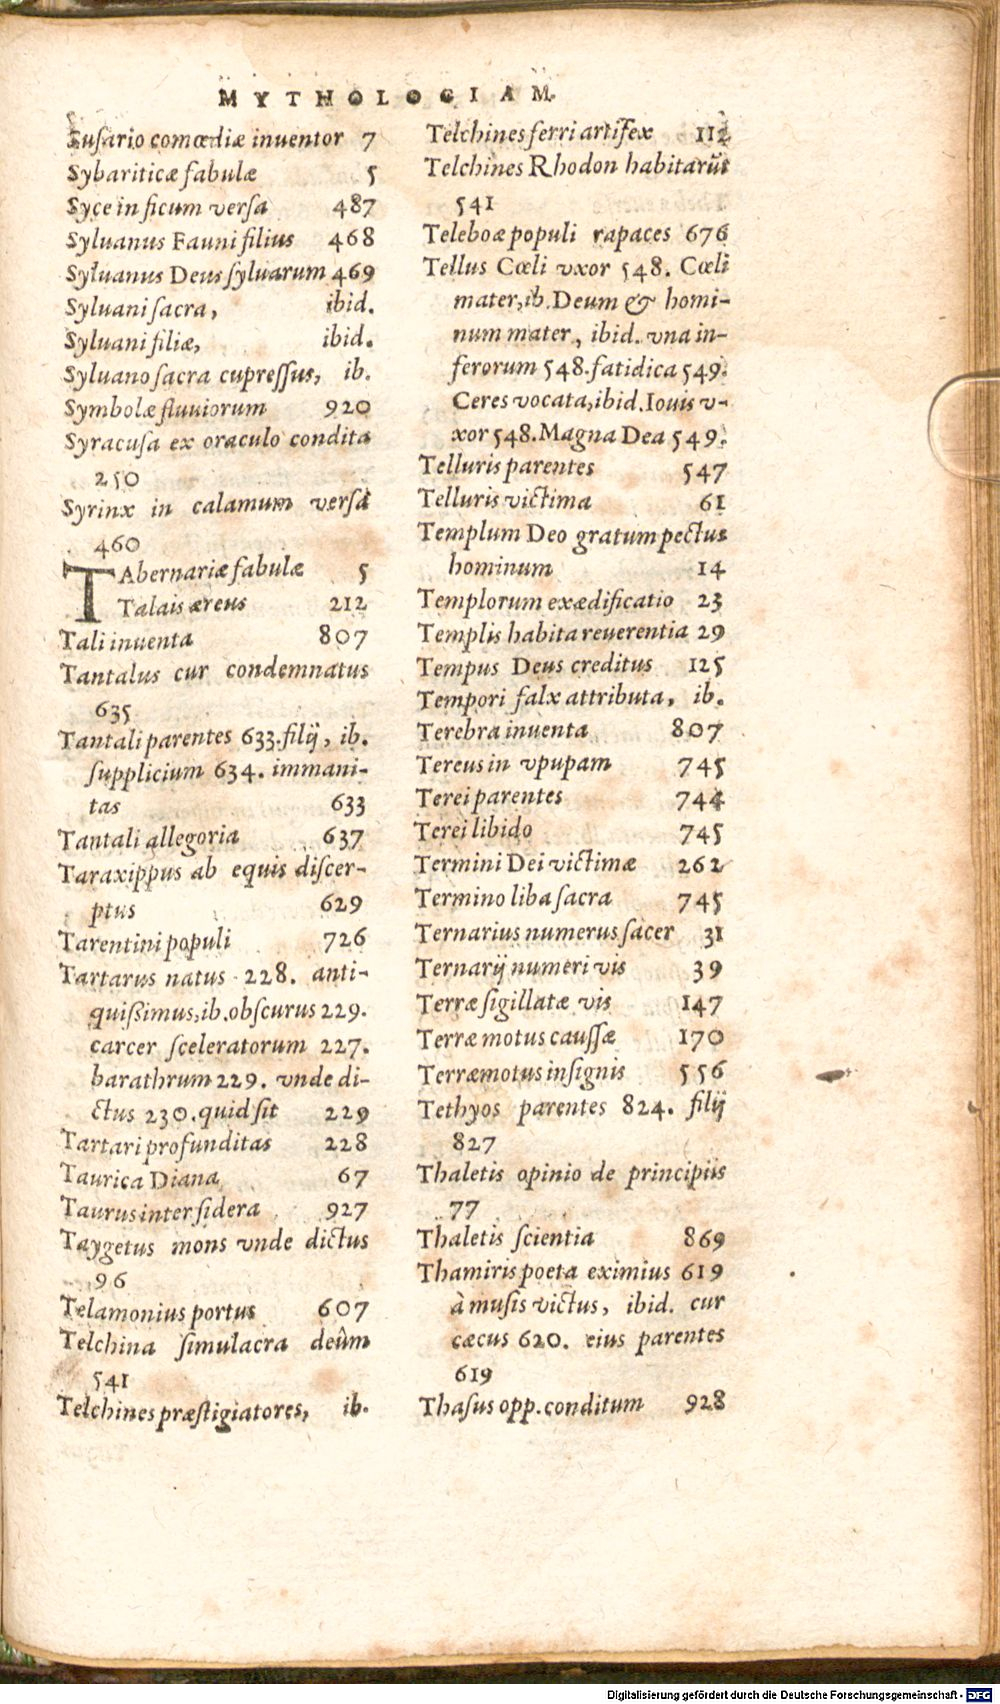 MYTHOLOGIAM.
Susario comœdiæ inuentor 7
Sybariticæ fabulæ 5
Syce in ficum versa 487
Syluanus Fauni filius 468
Syluanus Deus syluarum 469
Syluani sacra, ibid.
Syluani filiæ, ibid.
Syluano sacra cupressus, ib.
Symbolæ fluuiorum 920
Syracusa ex oraculo condita
250
Syrinx in calamum versa
460
TAbernariæ fabulæ 5
Talais æreus 212
Tali inuenta 807
Tantalus cur condemnatus
635
Tantali parentes 633. filij, ib.
supplicium 634. immani-
tas 633
Tantali allegoria 637
Taraxippus ab equis discer-
ptus 629
Tarentini populi 726
Tartarus natus 228. anti-
quißimus, ib. obscurus 229.
carcer sceleratorum 227.
barathrum 229. vnde di-
ctus 230. quid sit 229
Tartari profunditas 228
Taurica Diana 67
Taurus inter sidera 927
Taygetus mons vnde dictus
96
Telamonius portus 607
Telchina simulacra deûm
541
Telchines præstigiatores, ib.
Telchines ferri artifex 112
Telchines Rhodon habitarūt
541
Teleboæ populi rapaces 676
Tellus Cœli vxor 548. Cœli
mater, ib. Deum & homi-
num mater, ibid. vna in-
ferorum 548. fatidica 549.
Ceres vocata, ibid. Iouis v-
xor 548. Magna Dea 549.
Telluris parentes 547
Telluris victima 61
Templum Deo gratum pectus
hominum 14
Templorum exædificatio 23
Templis habita reuerentia 29
Tempus Deus creditus 125
Tempori falx attributa, ib.
Terebra inuenta 807
Tereus in vpupam 745
Terei parentes 744
Terei libido 745
Termini Dei victimæ 262
Termino liba sacra 745
Ternarius numerus sacer 31
Ternarij numeri vis 39
Terræ sigillatæ vis 147
Terræ motus caussæ 170
Terræmotus insignis 556
Tethyos parentes 824. filij
827
Thaletis opinio de principiis
77
Thaletis scientia 869
Thamiris poeta eximius 619
à musis victus, ibid. cur
cæcus 620. eius parentes
619
Thasus opp. conditum 928
Digitalisierung gefördert durch die Deutsche Forschungsgemeinschaft - DFG